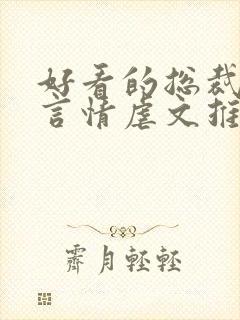 好看的总裁
言情虐文推
霁月轻轻